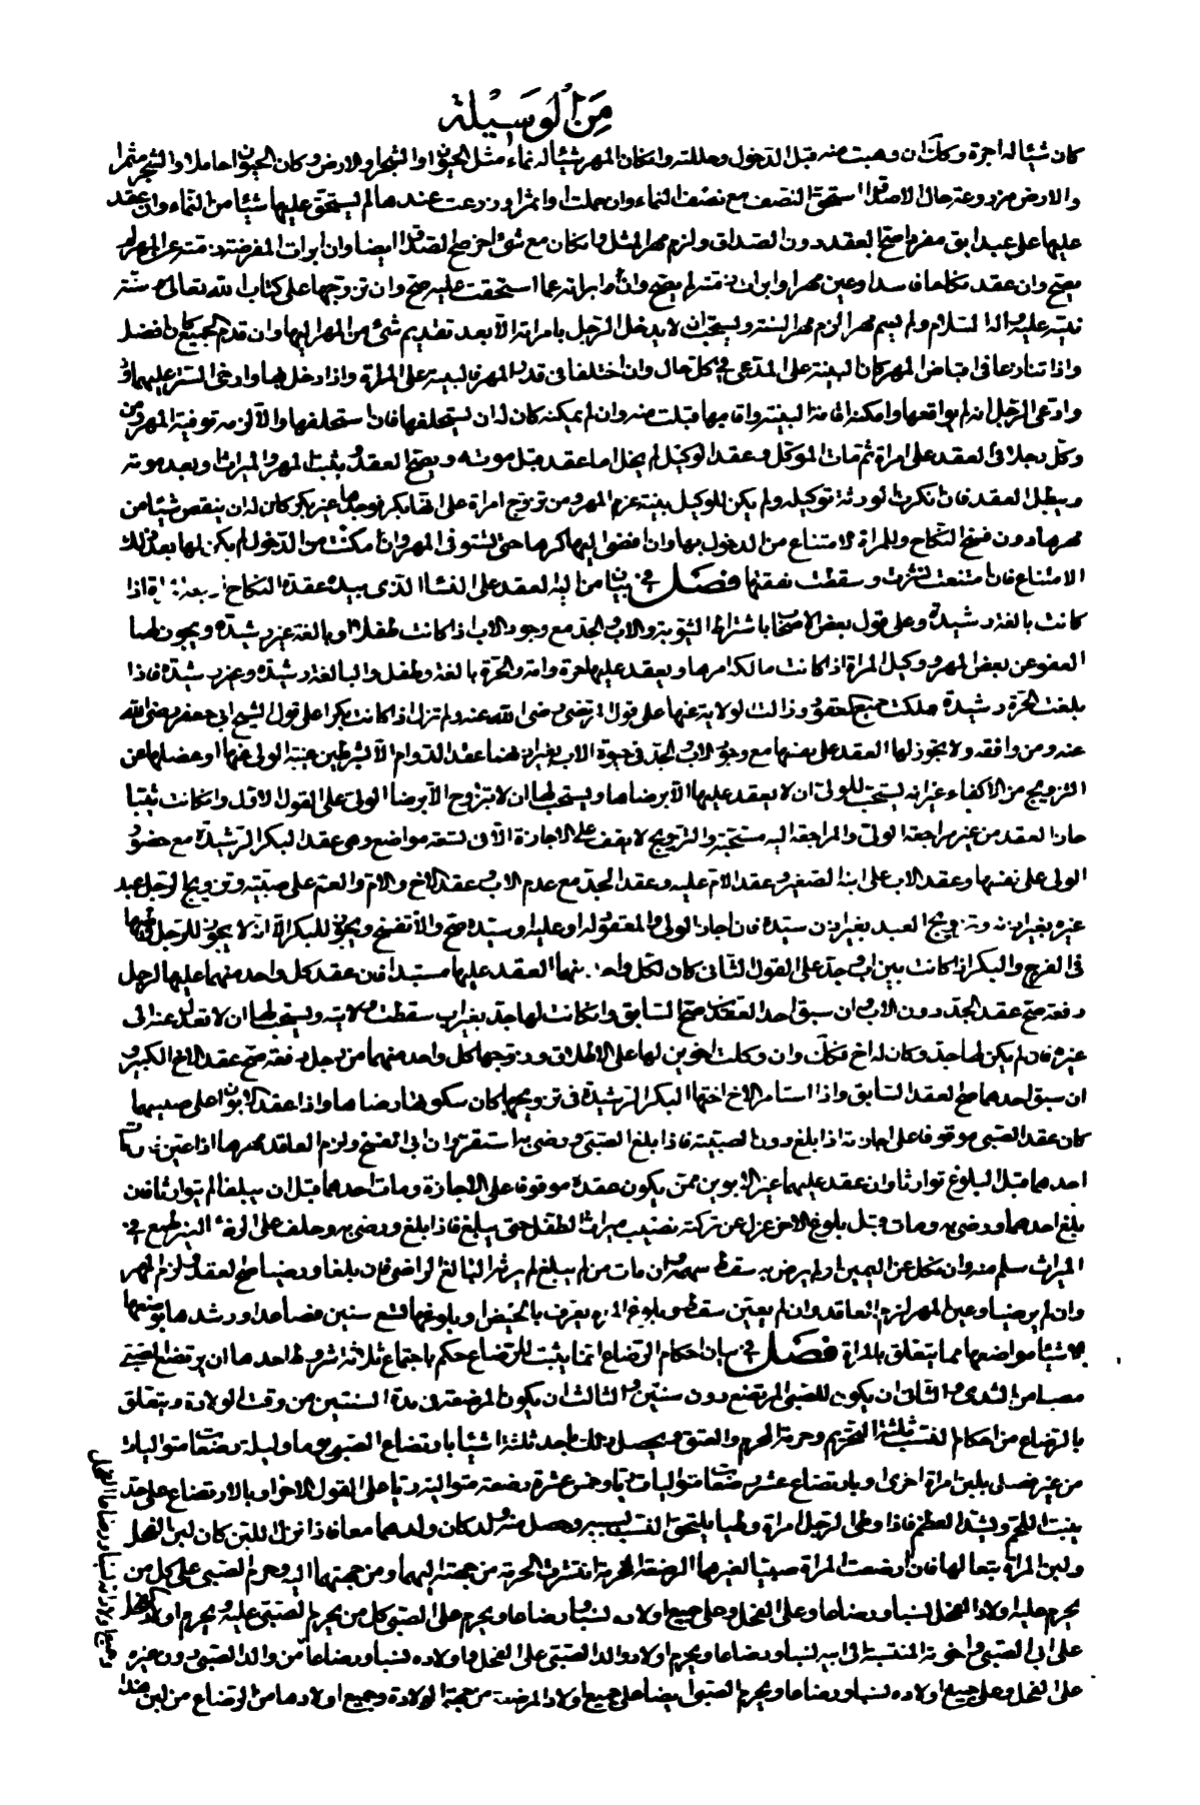 مِنَ الْوَسِيلة
كان شيئا له اجرة وكك ان وهبت منه قبل الدخول وحللته وان كان المهر شيئا له نماء مثل الحيوان او الشجر او الارض وكان الحيوان حاملا والشجر مثمرا
والارض مزروعة حال الاصداق استحق النصف مع نصف النماء وان حملت او اثمر او زرعت عندها لم يستحق عليها شيئا من النماء وان عقد
عليها على عبد ابق مفردا صح العقد دون الصداق ولزم مهر المثل وان كان مع شئ اخر صح الصداق ايضا وان ابرات المفوضة ذمته عن المهر لم
يصح وان عقد نكاحا فاسدا وعين مهرا وابرات ذمته لم يصح وان ابراته عما استحقت عليه صح وان تزوجها على كتاب الله تعالى وسنة
نبيه عليه واله السلام ولم يسم مهرا لزم مهر السنة ويستحب ان لا يدخل الرجل بامراته الا بعد تقديم شئ من المهر اليها وان قدم الجميع كان افضل
واذا تنازعا في اقباض المهر كان البينة على المدعى في كل حال وان اختلفا في قدر المهر فالبينة على المراة واذا دخل بها وارخى الستر عليهما
وادعى الرجل انه لم يواقعها وامكنه اقامة البينة واقامها قبلت منه وان لم يمكنه كان له ان يستحلفها فان استحلفها والا لزمه توفية المهر ومن
وكل رجلا في العقد على امراة ثم مات الموكل وعقد الوكيل لم يخل اما عقد قبل موته ويصح العقد ويثبت المهر والميراث او بعد موته
ويبطل العقد فان انكرت الورثة توكيله ولم يكن للوكيل بينة غرم المهر ومن تزوج امراة على انها بكر فوجدها غير بكر كان له ان ينقص شيئا من
مهرها دون فسخ النكاح وللمراة الامتناع من الدخول بها وان افضى اليها كرها حتى تستوفى المهر وان امكنت من الدخول لم يكن لها بعد ذلك
الامتناع فان امتنعت نشزت وسقطت نفقتها فصل في بيان من اليه العقد على النساء الذى بيده عقدة النكاح اربعة اذا
كانت بالغة رشيدة وعلى قول بعض الاصحاب باشتراط الثيوبة والاب والجد مع وجود الاب اذا كانت طفلا او بالغة غير رشيدة ويجوز لهما
العفو عن بعض المهر ووكيل المراة اذا كانت مالكة امرها ويعقد عليها حرة وامة والحرة بالغة وطفل والبالغة رشيدة وغير رشيدة فاذا
بلغت الحرة رشيدة ملكت جميع حقوق وزالت الولاية عنها على قول المرتضى رضى الله عنه ولم تزل اذا كانت بكرا على قول الشيخ ابى جعفر رضى الله
عنه ومن وافقه ولا يجوز لها العقد على نفسها مع وجود الاب والجد في حيوة الاب بغير اذنهما عقد الدوام الا بشرطين غيبة الولى عنها او عضلها عن
التزويج من الاكفاء غير انه يستحب للولى ان لا يعقد عليها الا برضاها ويستحب لها ان لا تتزوج الا برضا الولى على القول الاول وان كانت ثيبا
جاز العقد من غير مراجعة الولى والمراجعة اليه مستحبة والتزويج لا يقف على الاجازة الا في تسعة مواضع وهى عقد البكر الرشيدة مع حضور
الولى على نفسها وعقد الاب على ابنه الصغير وعقد الام عليه وعقد الجد مع عدم الاب وعقد الاخ والام والعم على صبية وتزويج الرجل عبد
غيره بغير اذنه وتزويج العبد بغير اذن سيده فان اجاز الولى والمعقود له او عليه او سيده صح والا انفسخ ويجوز للبكر الا انه لا يجوز للرجل وطيها
في الفرج والبكر اذا كانت بين اب وجد على القول الثانى كان لكل واحد منهما العقد عليها مستبدا فان عقد كل واحد منهما عليها لرجل
دفعة صح عقد الجد دون الاب وان سبق احد العقدين صح السابق وان كانت لها جد بغير اب سقطت ولايته ويستحب لها ان لا تعدل عنه الى
غيره فان لم يكن لها جد وكان له اخ فكك وان وكلت اخوين لها على الاطلاق وزوجها كل واحد منهما من رجل دفعة صح عقد الاخ الكبير و
ان سبق احدهما صح العقد السابق واذا استامر الاخ اختها البكر الرشيدة في تزويجها كان سكوتها رضاها واذا عقد الابوان على صبييهما
كان عقد الصبى موقوفا على اجازته اذا بلغ دون الصبية فاذا بلغ الصبى ورضى به استقر وان ابى انفسخ ولزم العاقد مهرها اذا عين ومات
احدهما قبل البلوغ توارثا وان عقد عليهما غير الابوين ممن يكون عقده موقوفا على الاجازة ومات احدهما قبل ان يبلغا لم يتوارثا فان
بلغ احدهما ورضى به ومات قبل بلوغ الاخر عزل عن تركته نصيب ميراث الطفل حتى يبلغ فاذا بلغ ورضى به وحلف على انه لم يرض للطمع في
الميراث سلم منه وان نكل عن اليمين او لم يرض به سقط سهمه وان مات من لم يبلغ لم يرث البالغ الراضى فان بلغا ورضيا صح العقد ولزم المهر
وان لم يرضيا وعين المهر لزم العاقد وان لم يعين سقط وبلوغ المراة يعرف بالحيض او بلوغها تسع سنين فصاعدا ورشدها بوضعها
الاشياء مواضعها مما يتعلق بالمراة فصل في بيان احكام الرضاع انما يثبت للرضاع حكم باجتماع ثلاثة شروط احدها ان يرتضع الصبى
مصا من الثدى والثانى ان يكون للصبى المرتضع دون سنتين والثالث ان يكون المرضعة في مدة السنتين من وقت الولادة ويتعلق
بالرضاع من احكام النسب ثلثة التحريم وحرمة المحرم والعتق ويحصل ذلك باحد ثلثة اشياء بارتضاع الصبى يوما وليلة رضعات متواليات
من غير فصل بلبن امراة اخرى او بارتضاع عشر رضعات متواليات ريا وخمس عشرة رضعة متوالية ريا على القول الاخر او بالارتضاع على حد
ينبت اللحم ويشتد العظم فاذا وطى الرجل امراة وطيا يلحق النسب بسببه وحصل منه ولد كان ولدهما معا فاذا نزل اللبن كان لبن الفحل
ولبن المراة تبعا لها فان ارضعت المراة صبيا لغيرها الرضعة المحرمة انتشرت الحرمة من جهته اليهما ومن جهتهما اليه وحرم الصبى على كل من
يحرم عليه اولاد الفحل نسبا ورضاعا وعلى الفحل وعلى جميع اولاده نسبا ورضاعا ويحرم على الصبى كل من يحرم الصبى عليه ويحرم اولاد الفحل
على ابى الصبى واخوته المنتسبة الى ابيه نسبا ورضاعا ويحرم اولاد والد الصبى على الفحل واولاده نسبا ورضاعا من والد الصبى دون غيره
على الفحل وعلى جميع اولاده نسبا ورضاعا ويحرم الصبى ايضا على جميع اولاد المرضعة من جهة الولادة وجميع اولادها من الرضاع من لبن هذا